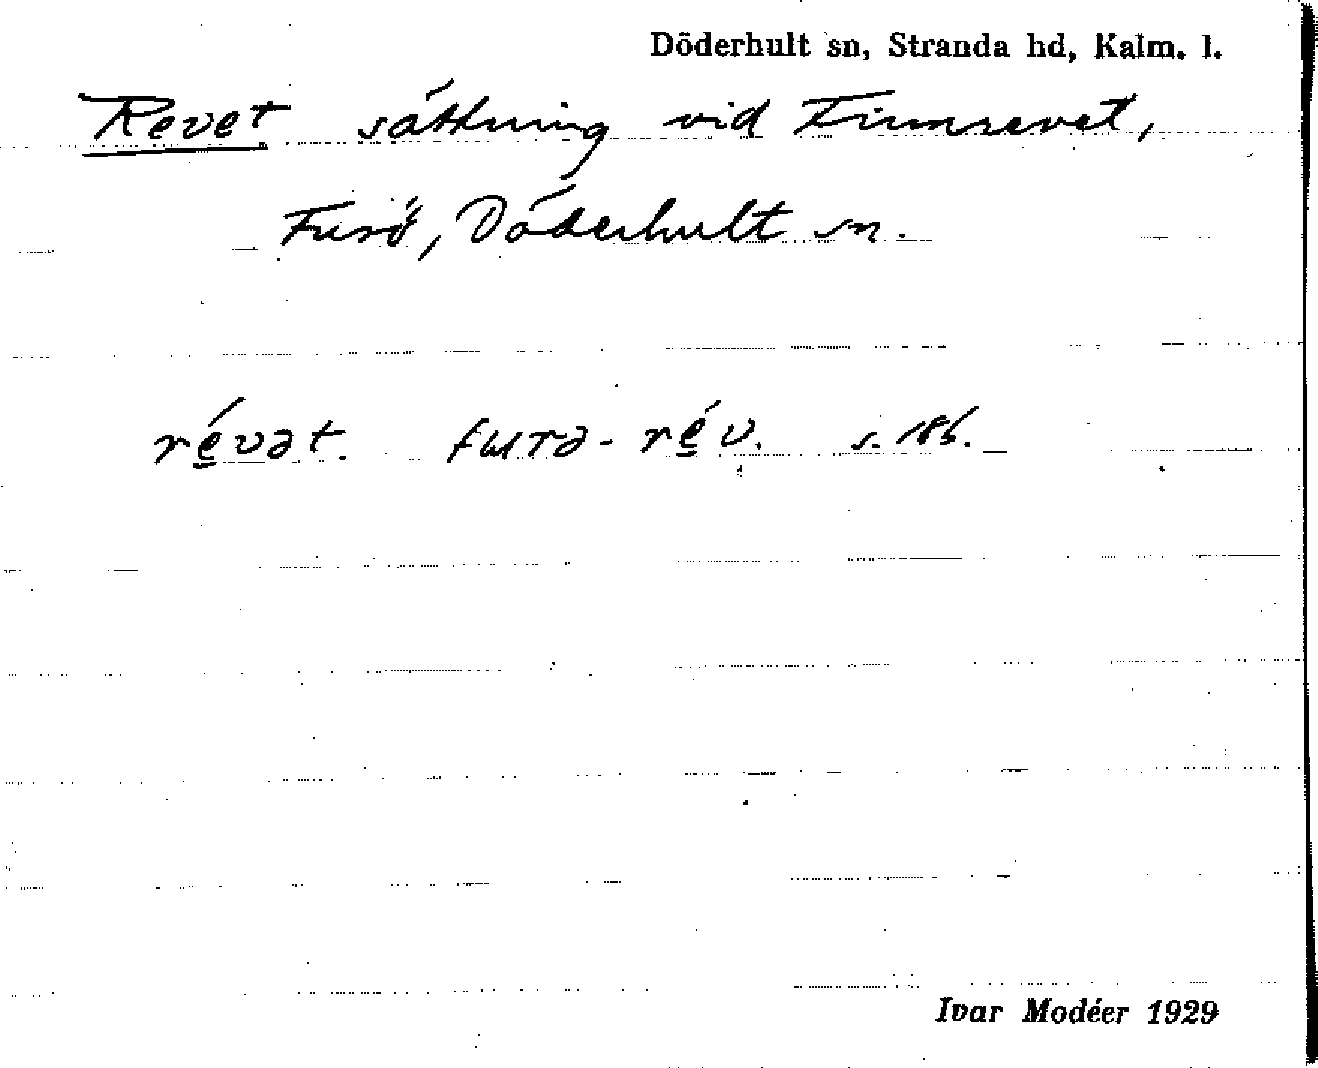 Döderhult sn, Stranda hd, Kalm. l.
Revet sättning vid Finnrevet,
Furö, Döderhult sn.
ré̲vət. fɯrə-ré̲v. s. 186.
Ivar Modéer 1929